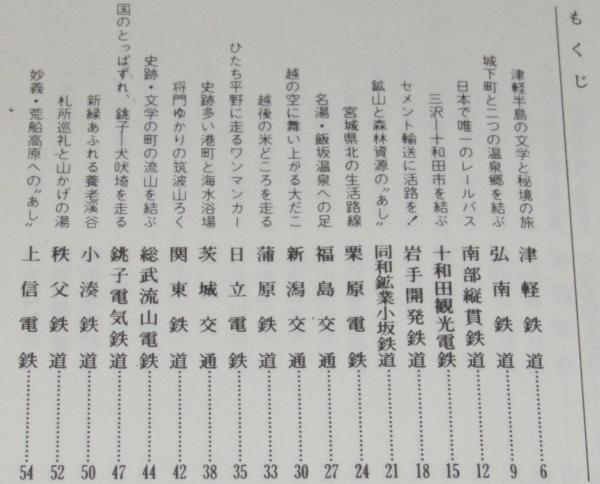 もくじ
津軽半島の文学と秘境の旅 津軽鉄道 6
城下町と二つの温泉郷を結ぶ 弘南鉄道 9
日本で唯一のレールバス 南部縦貫鉄道 12
三沢―十和田市を結ぶ 十和田観光電鉄 15
セメント輸送に活路を! 岩手開発鉄道 18
鉱山と森林資源の〝あし〟 同和鉱業小坂鉄道 21
宮城県北の生活路線 栗原電鉄 24
名湯・飯坂温泉への足 福島交通 27
越の空に舞い上がる大だこ 新潟交通 30
越後の米どころを走る 蒲原鉄道 33
ひたち平野に走るワンマンカー 日立電鉄 35
史跡多い港町と海水浴場 茨城交通 38
将門ゆかりの筑波山ろく 関東鉄道 42
史跡・文学の町の流山を結ぶ 総武流山電鉄 44
国のとっぱずれ、銚子―犬吠埼を走る 銚子電気鉄道 47
新緑あふれる養老溪谷 小湊鉄道 50
札所巡礼と山かげの湯 秩父鉄道 52
妙義・荒船高原への〝あし〟 上信電鉄 54